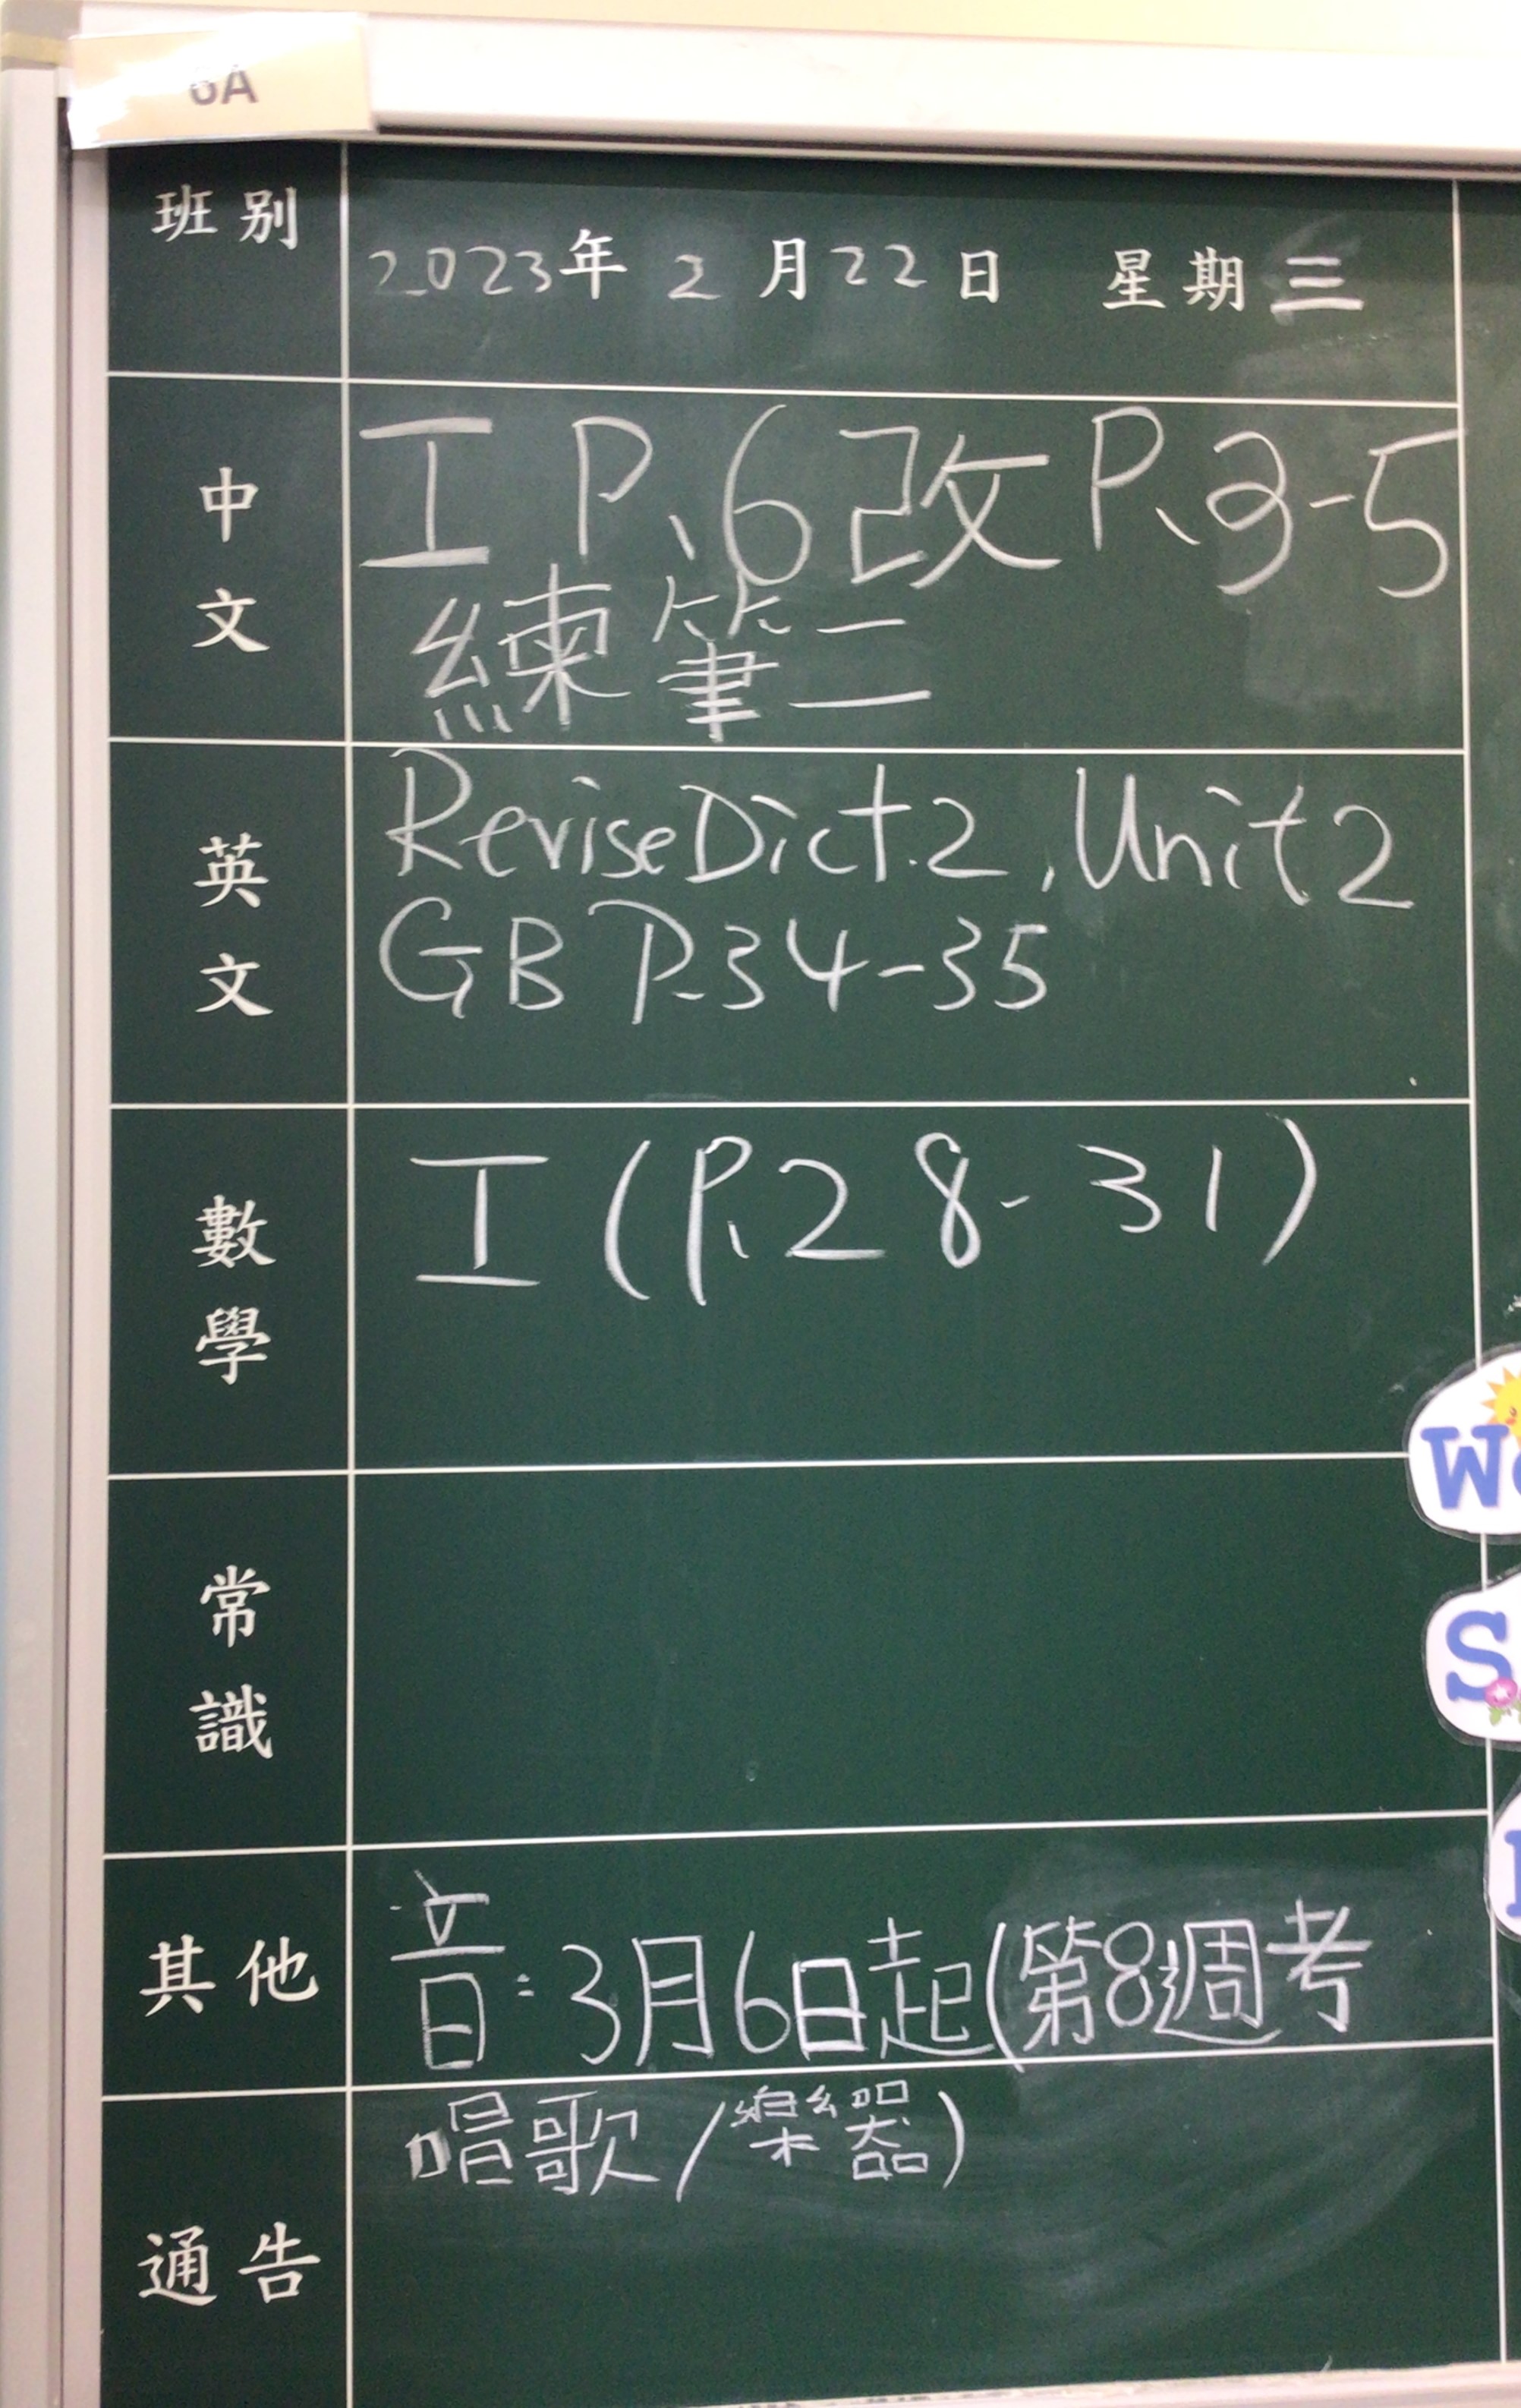 6A
班別
2023年 2 月22日 星期三
中文
工 P、6 改 P、3-5
練筆二
英文
Revise Dict.2, Unit 2
GB P.34-35
數學
工 (P.28-31)
常識
其他
音：3月6日起(第8週考
唱歌/樂器)
通告
W
S